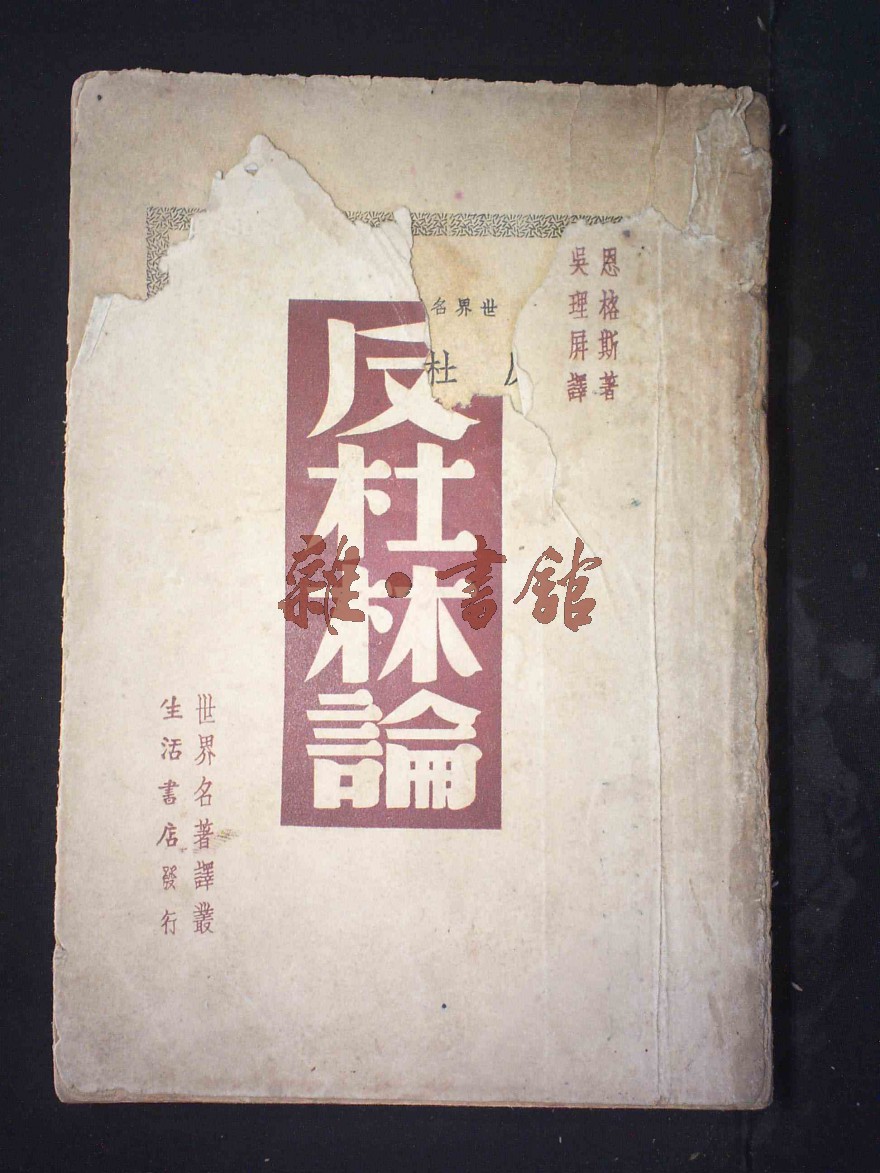 恩格斯著
吳理屏譯
世界名
杜
反杜林論
雜·書館
世界名著譯叢
生活書店發行